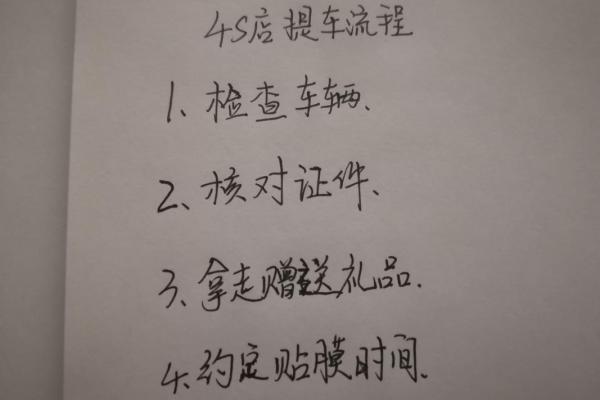 4S店提车流程
1、检查车辆、
2、核对证件、
3、拿走赠送礼品.
4、约定贴膜时间、